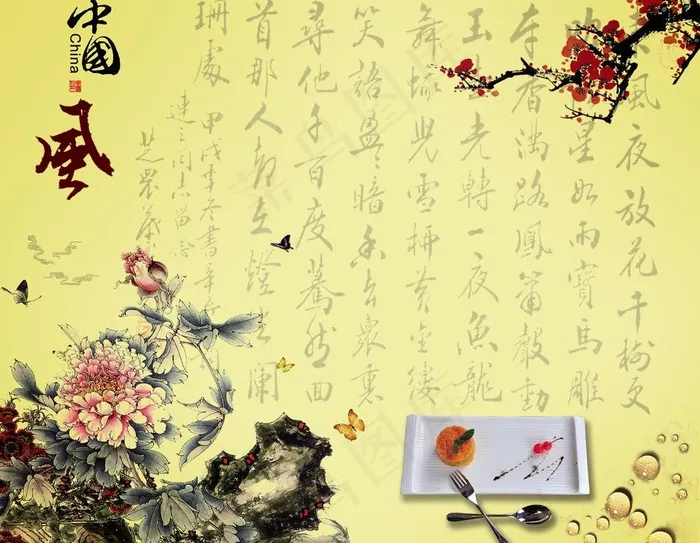 中國
China
風
東風夜放花千樹更
吹落星如雨寶馬雕
車香滿路鳳簫聲動
玉壺光轉一夜魚龍
舞蛾兒雪柳黃金縷
笑語盈〻暗香去眾裏
尋他千百度驀然回
首那人却在燈火闌
珊處 甲戌年冬書辛
連之同志留念